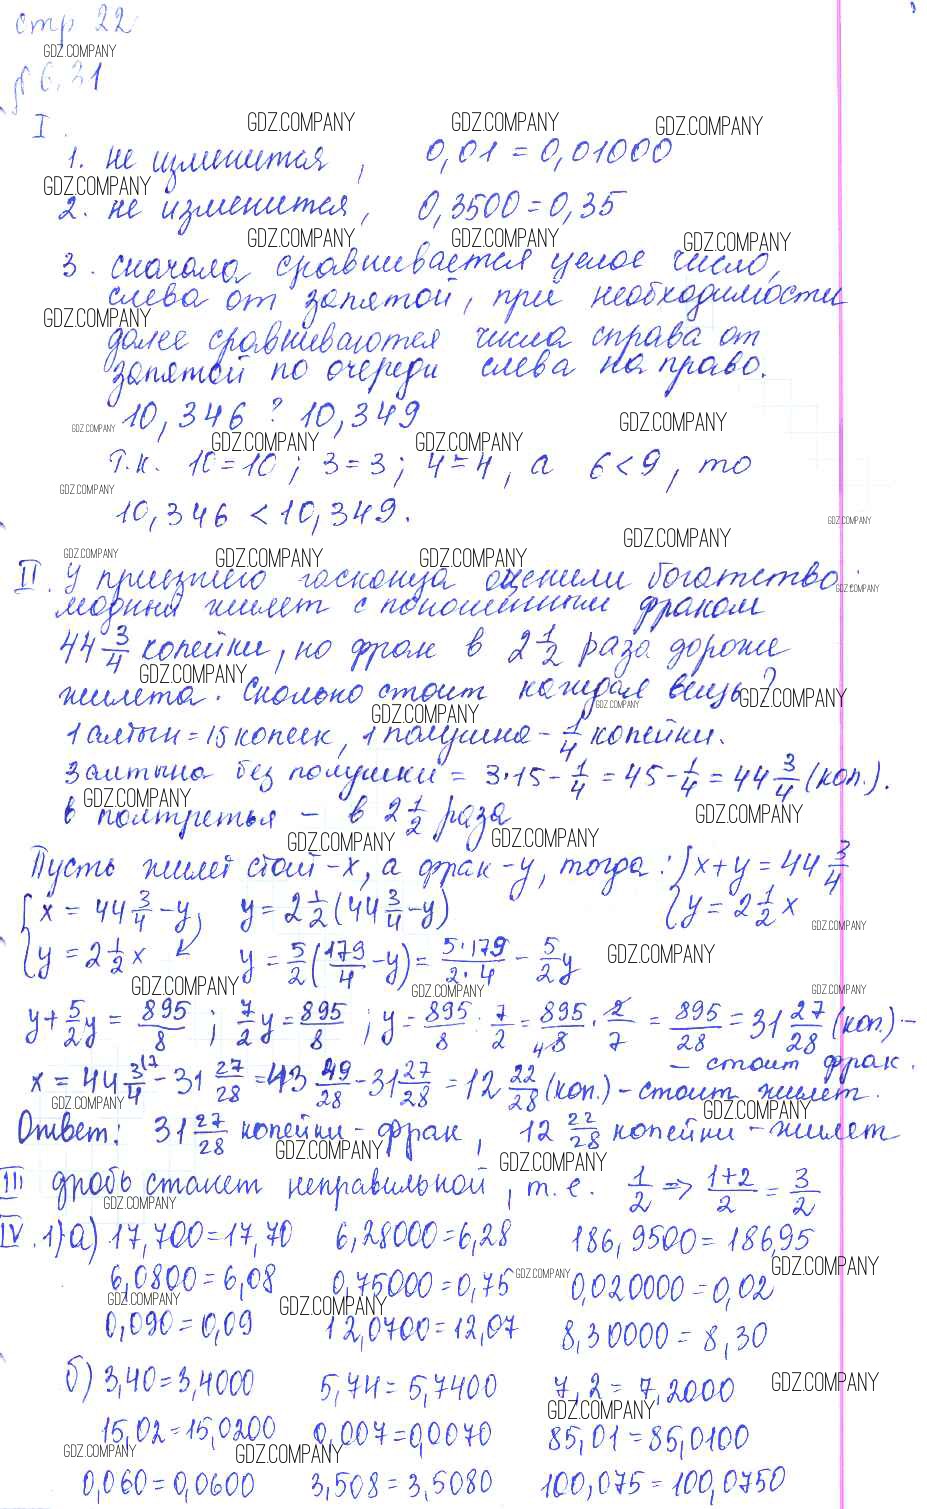 стр 22
GDZ.COMPANY
№ 6.31
I.
GDZ.COMPANY GDZ.COMPANY GDZ.COMPANY
1. не изменится, 0,01 = 0,01000
GDZ.COMPANY
2. не изменится, 0,3500 = 0,35
GDZ.COMPANY GDZ.COMPANY GDZ.COMPANY
3. сначала сравнивается целое число,
слева от запятой, при необходимости
GDZ.COMPANY
далее сравниваются числа справа от
запятой по очереди слева на право.
10,346 ? 10,349
GDZ.COMPANY GDZ.COMPANY
GDZ.COMPANY GDZ.COMPANY
т.к. 10=10; 3=3; 4=4, а 6<9, то
GDZ.COMPANY
10,346 < 10,349.
GDZ.COMPANY
GDZ.COMPANY GDZ.COMPANY GDZ.COMPANY GDZ.COMPANY
II. У приезжего гасконца оценили богатство:
GDZ.COMPANY
модный жилет с поношенным фраком
44 3/4 копейки, но фрак в 2 1/2 раза дороже
GDZ.COMPANY
жилета. Сколько стоит каждая вещь?
GDZ.COMPANY GDZ.COMPANY GDZ.COMPANY
1 алтын = 15 копеек, 1 полушка - 1/4 копейки.
3 алтына без полушки = 3·15 - 1/4 = 45 - 1/4 = 44 3/4 (коп.).
GDZ.COMPANY GDZ.COMPANY
в полтретья - в 2 1/2 раза
GDZ.COMPANY GDZ.COMPANY
Пусть жилет стоит - x, а фрак - y, тогда: { x + y = 44 3/4
{ x = 44 3/4 - y, y = 2 1/2 (44 3/4 - y) { y = 2 1/2 x
GDZ.COMPANY
{ y = 2 1/2 x y = 5/2 (179/4 - y) = 5·179/2·4 - 5/2 y
GDZ.COMPANY
GDZ.COMPANY GDZ.COMPANY GDZ.COMPANY
y + 5/2 y = 895/8; 7/2 y = 895/8; y = 895/8 : 7/2 = 895/48 · 2/7 = 895/28 = 31 27/28 (коп.) -
- стоит фрак.
x = 44 3/4 - 31 27/28 = 43 49/28 - 31 27/28 = 12 22/28 (коп.) - стоит жилет.
GDZ.COMPANY GDZ.COMPANY
Ответ: 31 27/28 копейки - фрак, 12 22/28 копейки - жилет
GDZ.COMPANY GDZ.COMPANY
III дробь станет неправильной, т.е. 1/2 => 1+2/2 = 3/2
GDZ.COMPANY
IV. 1) а) 17,700 = 17,70 6,28000 = 6,28 186,9500 = 186,95
GDZ.COMPANY
6,0800 = 6,08 0,75000 = 0,75 0,020000 = 0,02
GDZ.COMPANY
GDZ.COMPANY GDZ.COMPANY
0,090 = 0,09 12,0700 = 12,07 8,30000 = 8,30
б) 3,40 = 3,4000 5,74 = 5,7400 7,2 = 7,2000
GDZ.COMPANY
GDZ.COMPANY
15,02 = 15,0200 0,007 = 0,0070 85,01 = 85,0100
GDZ.COMPANY GDZ.COMPANY
0,060 = 0,0600 3,508 = 3,5080 100,075 = 100,0750